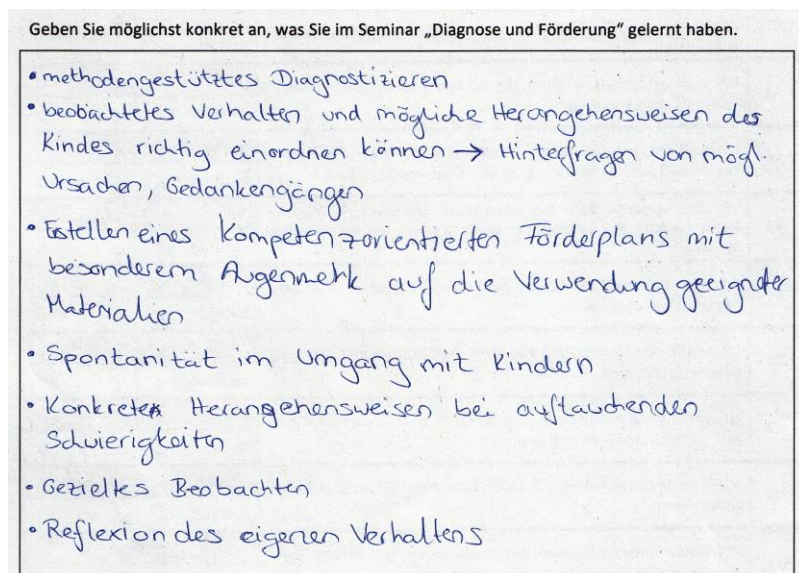 Geben Sie möglichst konkret an, was Sie im Seminar „Diagnose und Förderung“ gelernt haben.
• methodengestütztes Diagnostizieren
• beobachtetes Verhalten und mögliche Herangehensweisen des
Kindes richtig einordnen können → Hinterfragen von mögl.
Ursachen, Gedankengängen
• Erstellen eines kompetenzorientierten Förderplans mit
besonderem Augenmerk auf die Verwendung geeigneter
Materialien
• Spontanität im Umgang mit Kindern
• Konkrete Herangehensweisen bei auftauchenden
Schwierigkeiten
• Gezieltes Beobachten
• Reflexion des eigenen Verhaltens